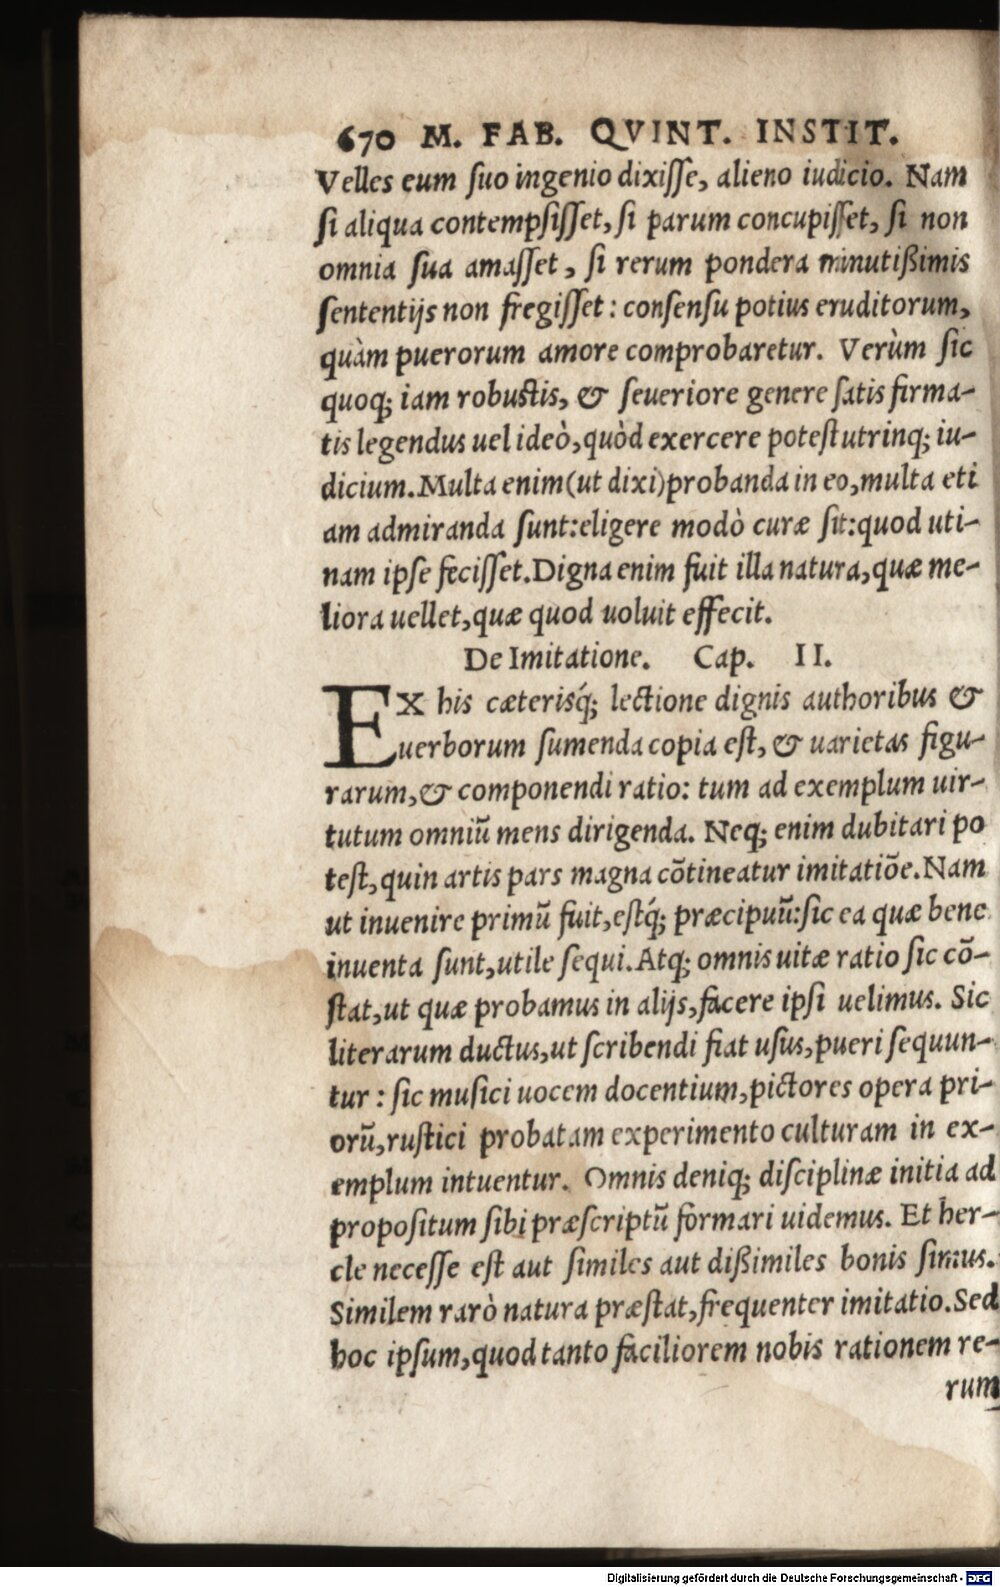 670 M. FAB. QVINT. INSTIT.
Velles eum ſuo ingenio dixiſſe, alieno iudicio. Nam
ſi aliqua contempſiſſet, ſi parum concupiſſet, ſi non
omnia ſua amaſſet, ſi rerum pondera minutißimis
ſententijs non fregiſſet: conſenſu potius eruditorum,
quàm puerorum amore comprobaretur. Verùm ſic
quoq; iam robuſtis, & ſeueriore genere ſatis firma-
tis legendus uel ideò, quòd exercere poteſt utrinq; iu-
dicium. Multa enim (ut dixi) probanda in eo, multa eti
am admiranda ſunt: eligere modò curæ ſit: quod uti-
nam ipſe feciſſet. Digna enim fuit illa natura, quæ me-
liora uellet, quæ quod uoluit effecit.
De Imitatione. Cap. II.
EX his cæterisq́; lectione dignis authoribus &
uerborum ſumenda copia eſt, & uarietas figu-
rarum, & componendi ratio: tum ad exemplum uir-
tutum omniũ mens dirigenda. Neq; enim dubitari po
teſt, quin artis pars magna cõtineatur imitatiõe. Nam
ut inuenire primũ fuit, eſtq́; præcipuũ: ſic ea quæ bene
inuenta ſunt, utile ſequi. Atq; omnis uitæ ratio ſic cõ-
ſtat, ut quæ probamus in alijs, facere ipſi uelimus. Sic
literarum ductus, ut ſcribendi fiat uſus, pueri ſequun-
tur: ſic muſici uocem docentium, pictores opera pri-
orũ, ruſtici probatam experimento culturam in ex-
emplum intuentur. Omnis deniq; diſciplinæ initia ad
propoſitum ſibi præſcriptũ formari uidemus. Et her-
cle neceſſe eſt aut ſimiles aut dißimiles bonis ſimus.
Similem rarò natura præſtat, frequenter imitatio. Sed
hoc ipſum, quod tanto faciliorem nobis rationem re-
rum
Digitalisierung gefördert durch die Deutsche Forschungsgemeinschaft - DFG